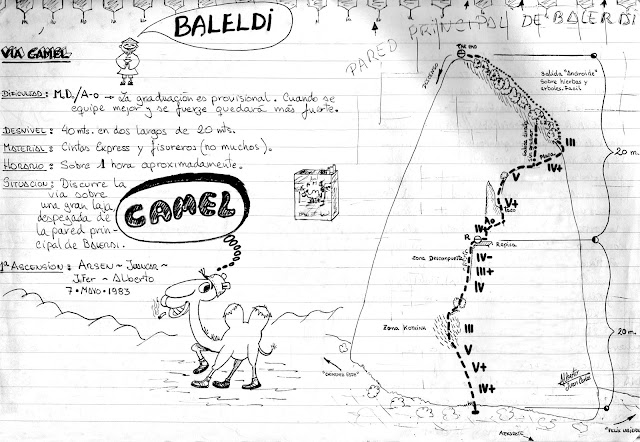 BALELDI
PARED PRINCIPAL DE BALERDI
VIA CAMEL
DIFICULTAD: M.D./A-0 → La graduación es provisional. Cuando se
equipe mejor y se fuerze quedará más fuerte.
DESNIVEL: 40 mts. en dos largos de 20 mts.
MATERIAL: Cintas Express y fisureros (no muchos).
HORARIO: Sobre 1 hora aproximadamente.
SITUACION: Discurre la
vía sobre
una gran laja
despegada de
la pared prin-
cipal de BALERDI.
1ª ASCENSION: ARSEN ~ Juancar ~
J.Fer ~ Alberto
7 • MAYO • 1983
CAMEL
The end
DESCENSO
Salida "Androide"
Sobre hierbas y
arboles. Facil
III
IV+
V
V+
Taco
Ao
IV
R
Repisa
Zona Descompuesta
IV-
III+
IV
III
V
V+
IV+
20 m.
20 m.